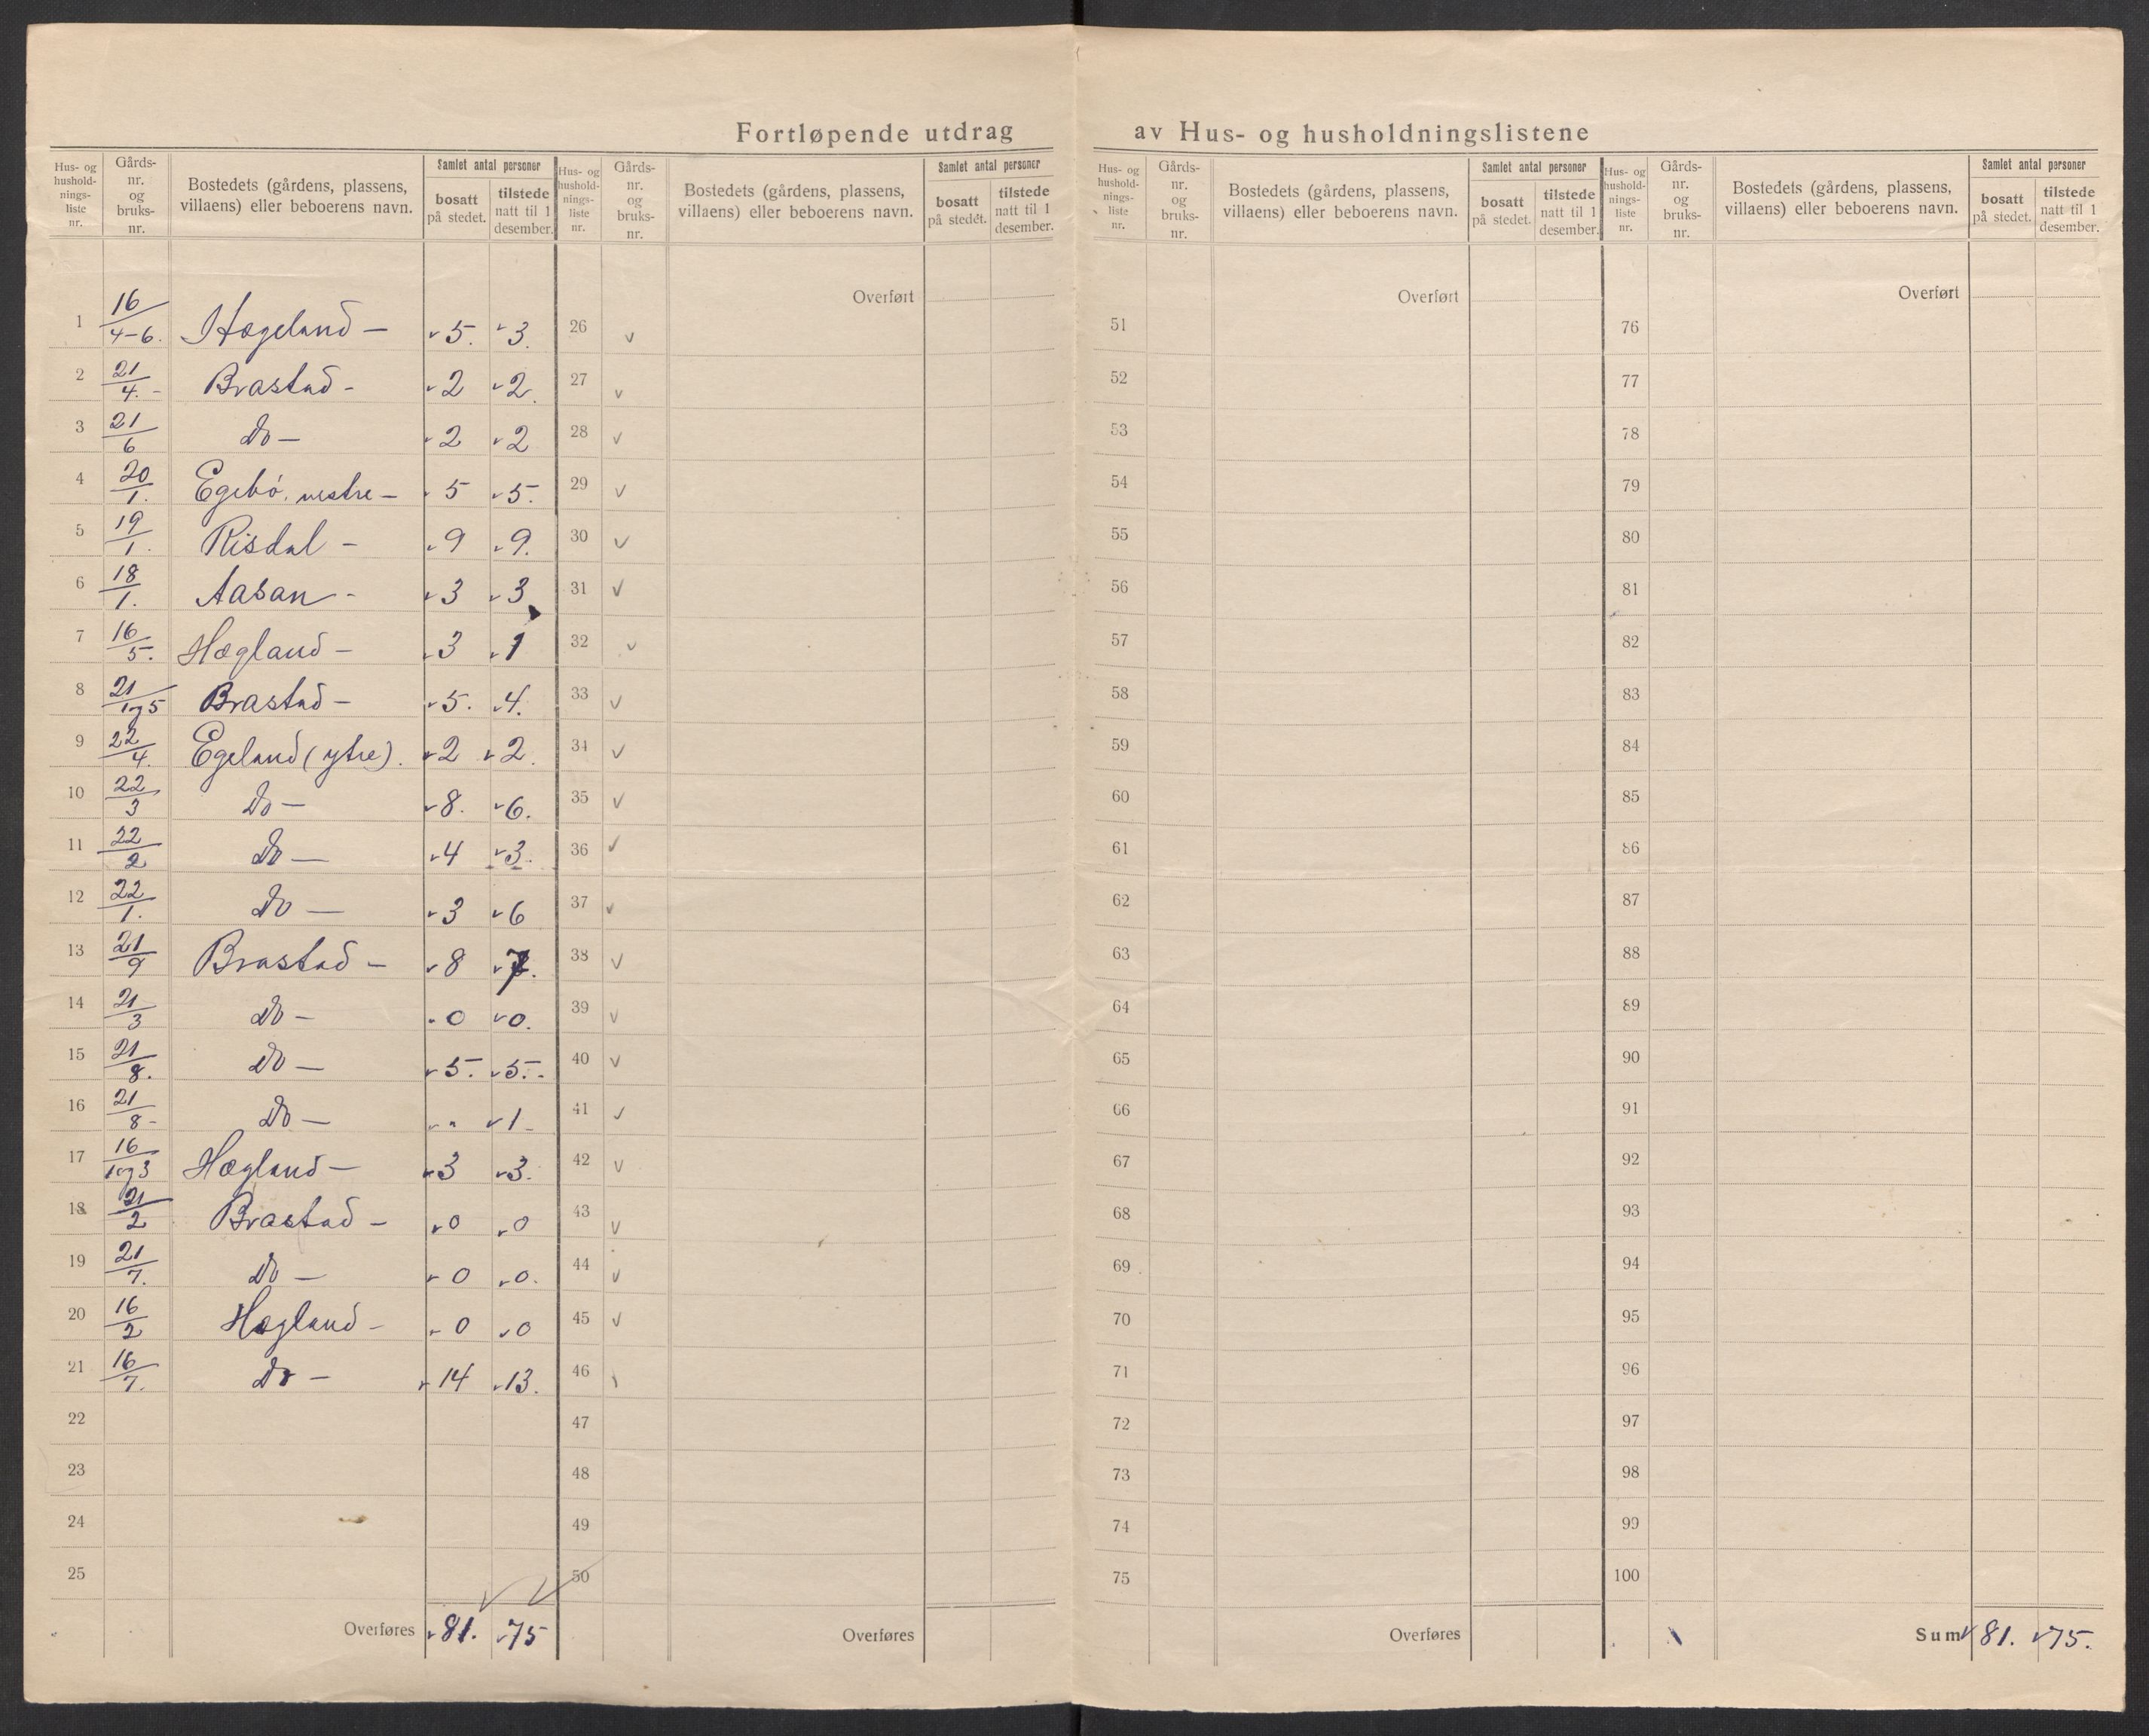 Fortløpende utdrag av Hus- og husholdningslistene
Hus- og husholdnings-liste nr. Gårds-nr. og bruks-nr. Bostedets (gårdens, plassens, villaens) eller beboerens navn. Samlet antal personer bosatt på stedet. tilstede natt til 1 desember.
1 16/4-6. Hægeland – 5. 3.
2 21/4. Brastad – 2 2.
3 21/6 Do – 2 2
4 20/1. Egebø. vestre – 5 5.
5 19/1. Risdal – 9 9.
6 18/1. Aasan – 3 3
7 16/5. Hægland – 3 1
8 21/1og5 Brastad – 5. 4.
9 22/4. Egeland (ytre). 2 2.
10 22/3 Do – 8. 6.
11 22/2 Do – 4 3.
12 22/1. Do – 3 6
13 21/9 Brastad – 8 7.
14 21/3 Do – 0 0.
15 21/8. Do – 5. 5.
16 21/8 Do – " 1
17 16/1og3 Hægland – 3 3.
18 21/2 Brastad – 0 0
19 21/7. Do – 0 0.
20 16/2 Hægland – 0 0
21 16/7. Do – 14 13.
22
23
24
25
Overføres 81. 75
Hus- og husholdnings-liste nr. Gårds-nr. og bruks-nr. Bostedets (gårdens, plassens, villaens) eller beboerens navn. Samlet antal personer bosatt på stedet. tilstede natt til 1 desember.
Overført
26 v
27 v
28 v
29 v
30 v
31 v
32 v
33 v
34 v
35 v
36 v
37 v
38 v
39 v
40 v
41 v
42 v
43 v
44 v
45 v
46
47
48
49
50
Overføres
Hus- og husholdnings-liste nr. Gårds-nr. og bruks-nr. Bostedets (gårdens, plassens, villaens) eller beboerens navn. Samlet antal personer bosatt på stedet. tilstede natt til 1 desember.
Overført
51
52
53
54
55
56
57
58
59
60
61
62
63
64
65
66
67
68
69
70
71
72
73
74
75
Overføres
Hus- og husholdnings-liste nr. Gårds-nr. og bruks-nr. Bostedets (gårdens, plassens, villaens) eller beboerens navn. Samlet antal personer bosatt på stedet. tilstede natt til 1 desember.
Overført
76
77
78
79
80
81
82
83
84
85
86
87
88
89
90
91
92
93
94
95
96
97
98
99
100
Sum 81. 75.